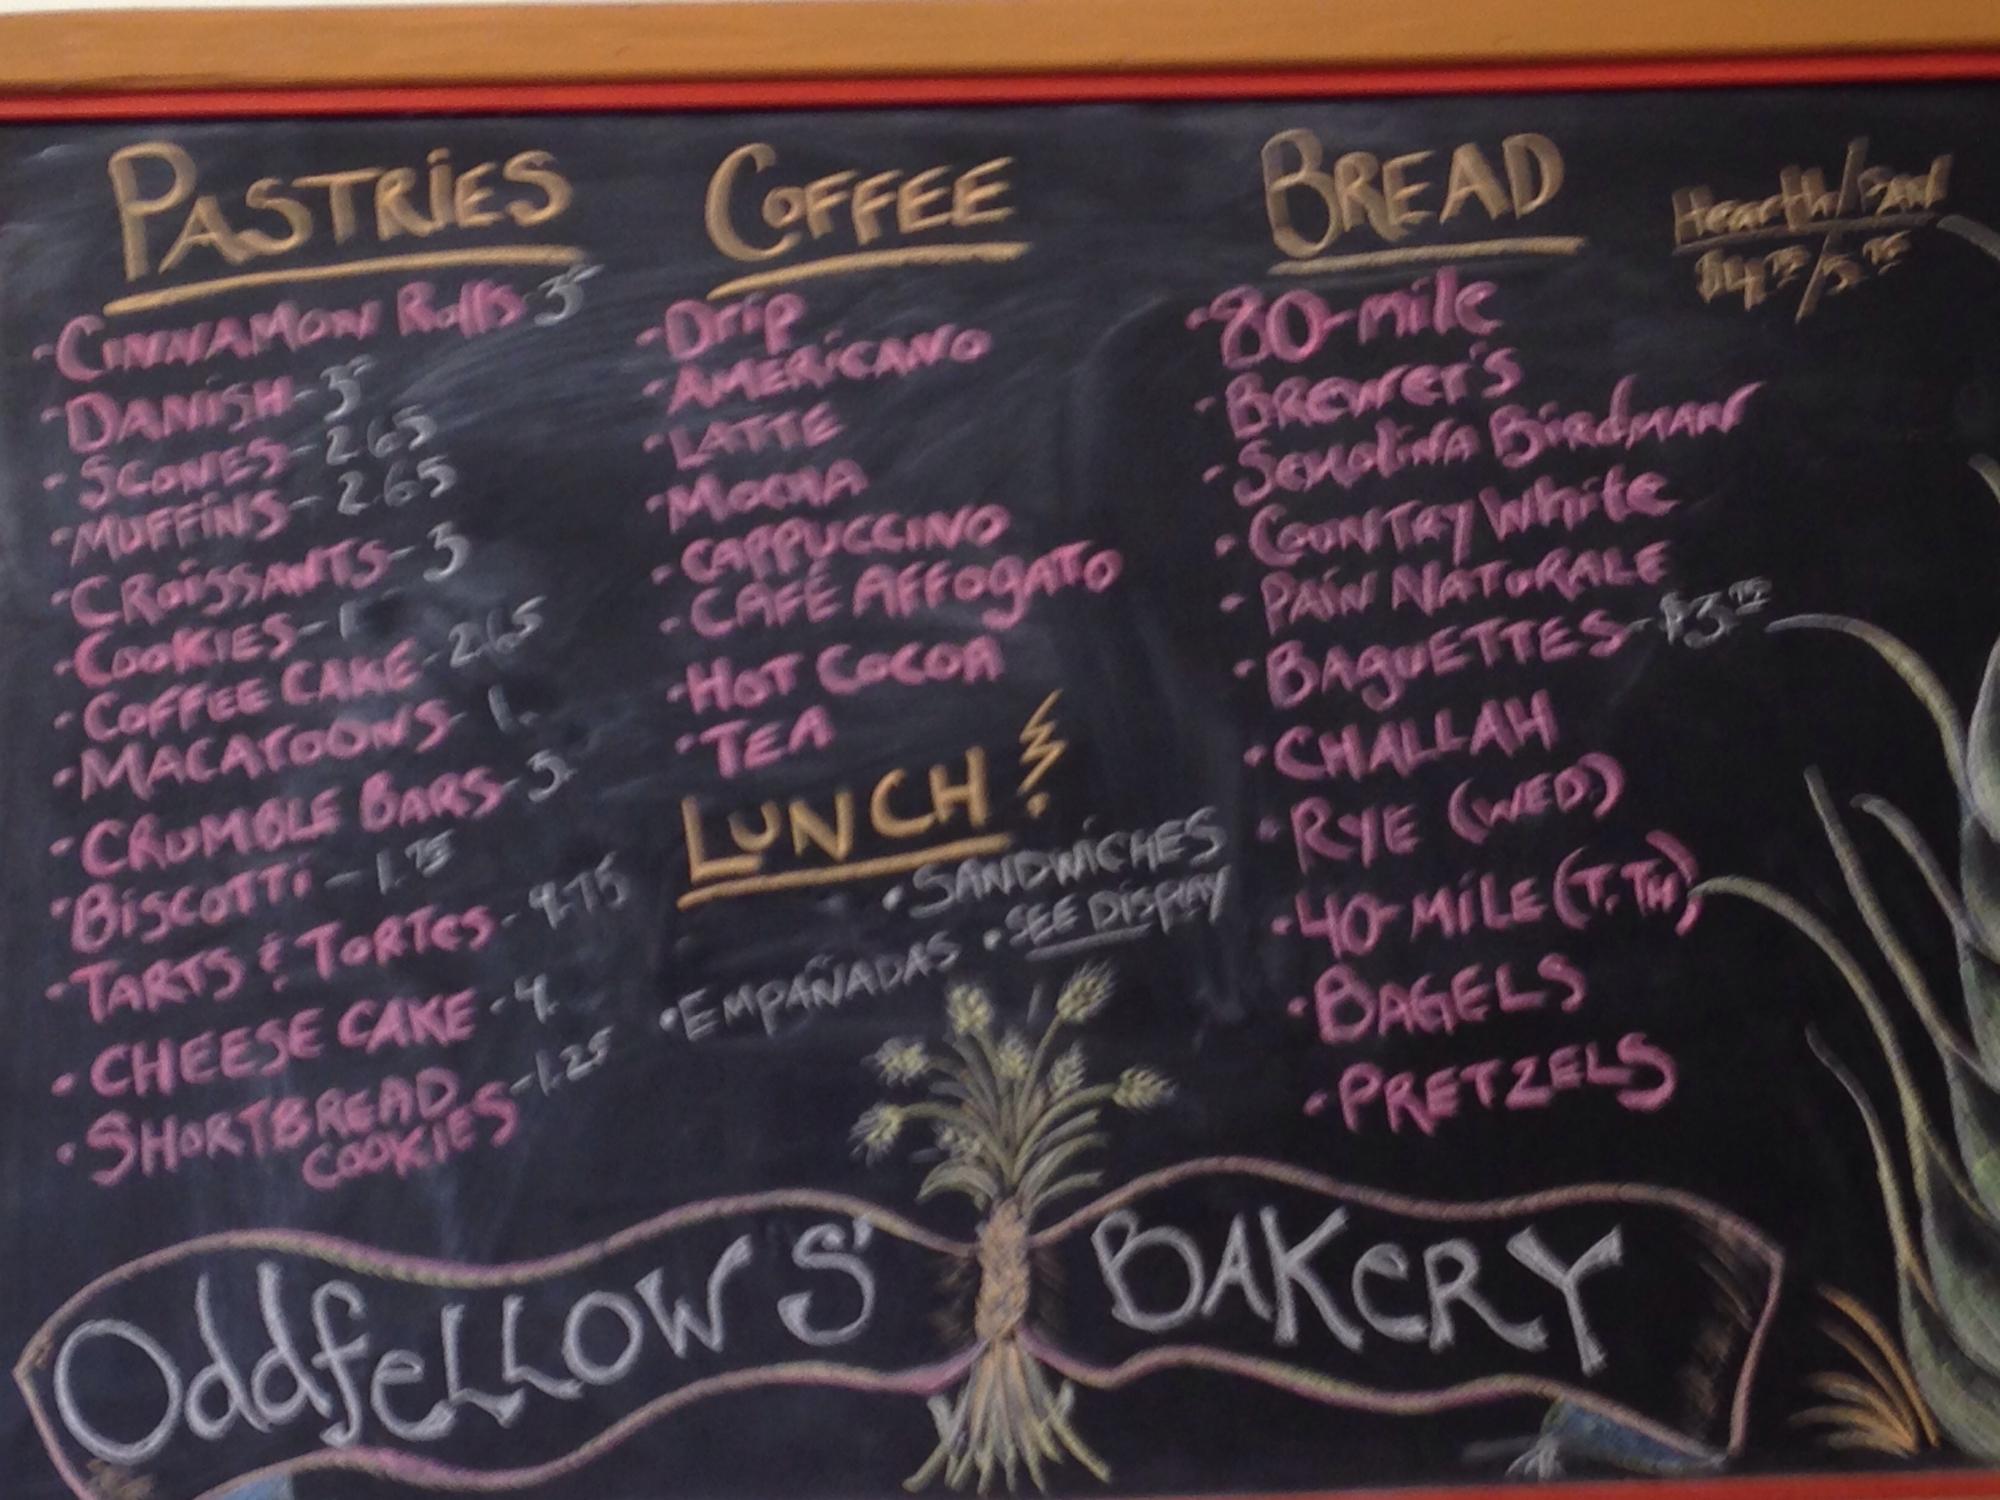 PASTRiES
· CINNAMON Rolls 3
· DANiSH - 3
· SCONES - 2.65
· MUFFiNS - 2.65
· CROiSSANTS - 3
· COOKiES - 1
· COFFEE CAKE - 2.65
· MACAroONS - 1.
· CRUMBLE BARS - 3.
· BiSCOTTi - 1.75
· TARTS & TORTES - 4.75
· CHEESE CAKE - 4.
· SHORTBREAD
COOKIES - 1.25
COFFEE
· Drip
· AMERiCANO
· LATTE
· MOCHA
· CAPPUCCINO
· CAFÉ AFFOgATO
· HOT COCOA
· TEA
LUNCH!
· SANDWiCHES
· SEE DiSPLAY
· EMPAÑADAS
BREAD
Hearth/PAN
$4.75/5.75
· 80-mile
· BREWEr'S
· SEMOLiNA BirdMAN
· COUNTRY White
· PAiN NATURALE
· BAgUETTES - $3.75
· CHALLAH
· RYE (WED.)
· 40-MiLE (T. TH)
· BAGELS
· PRETZELS
OddfeLLOWS' BAKERY